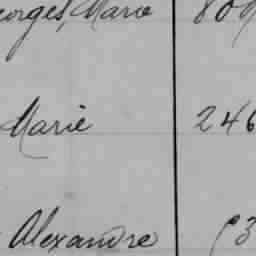 eorges, Marie 809
Marie 246
Alexandre 93